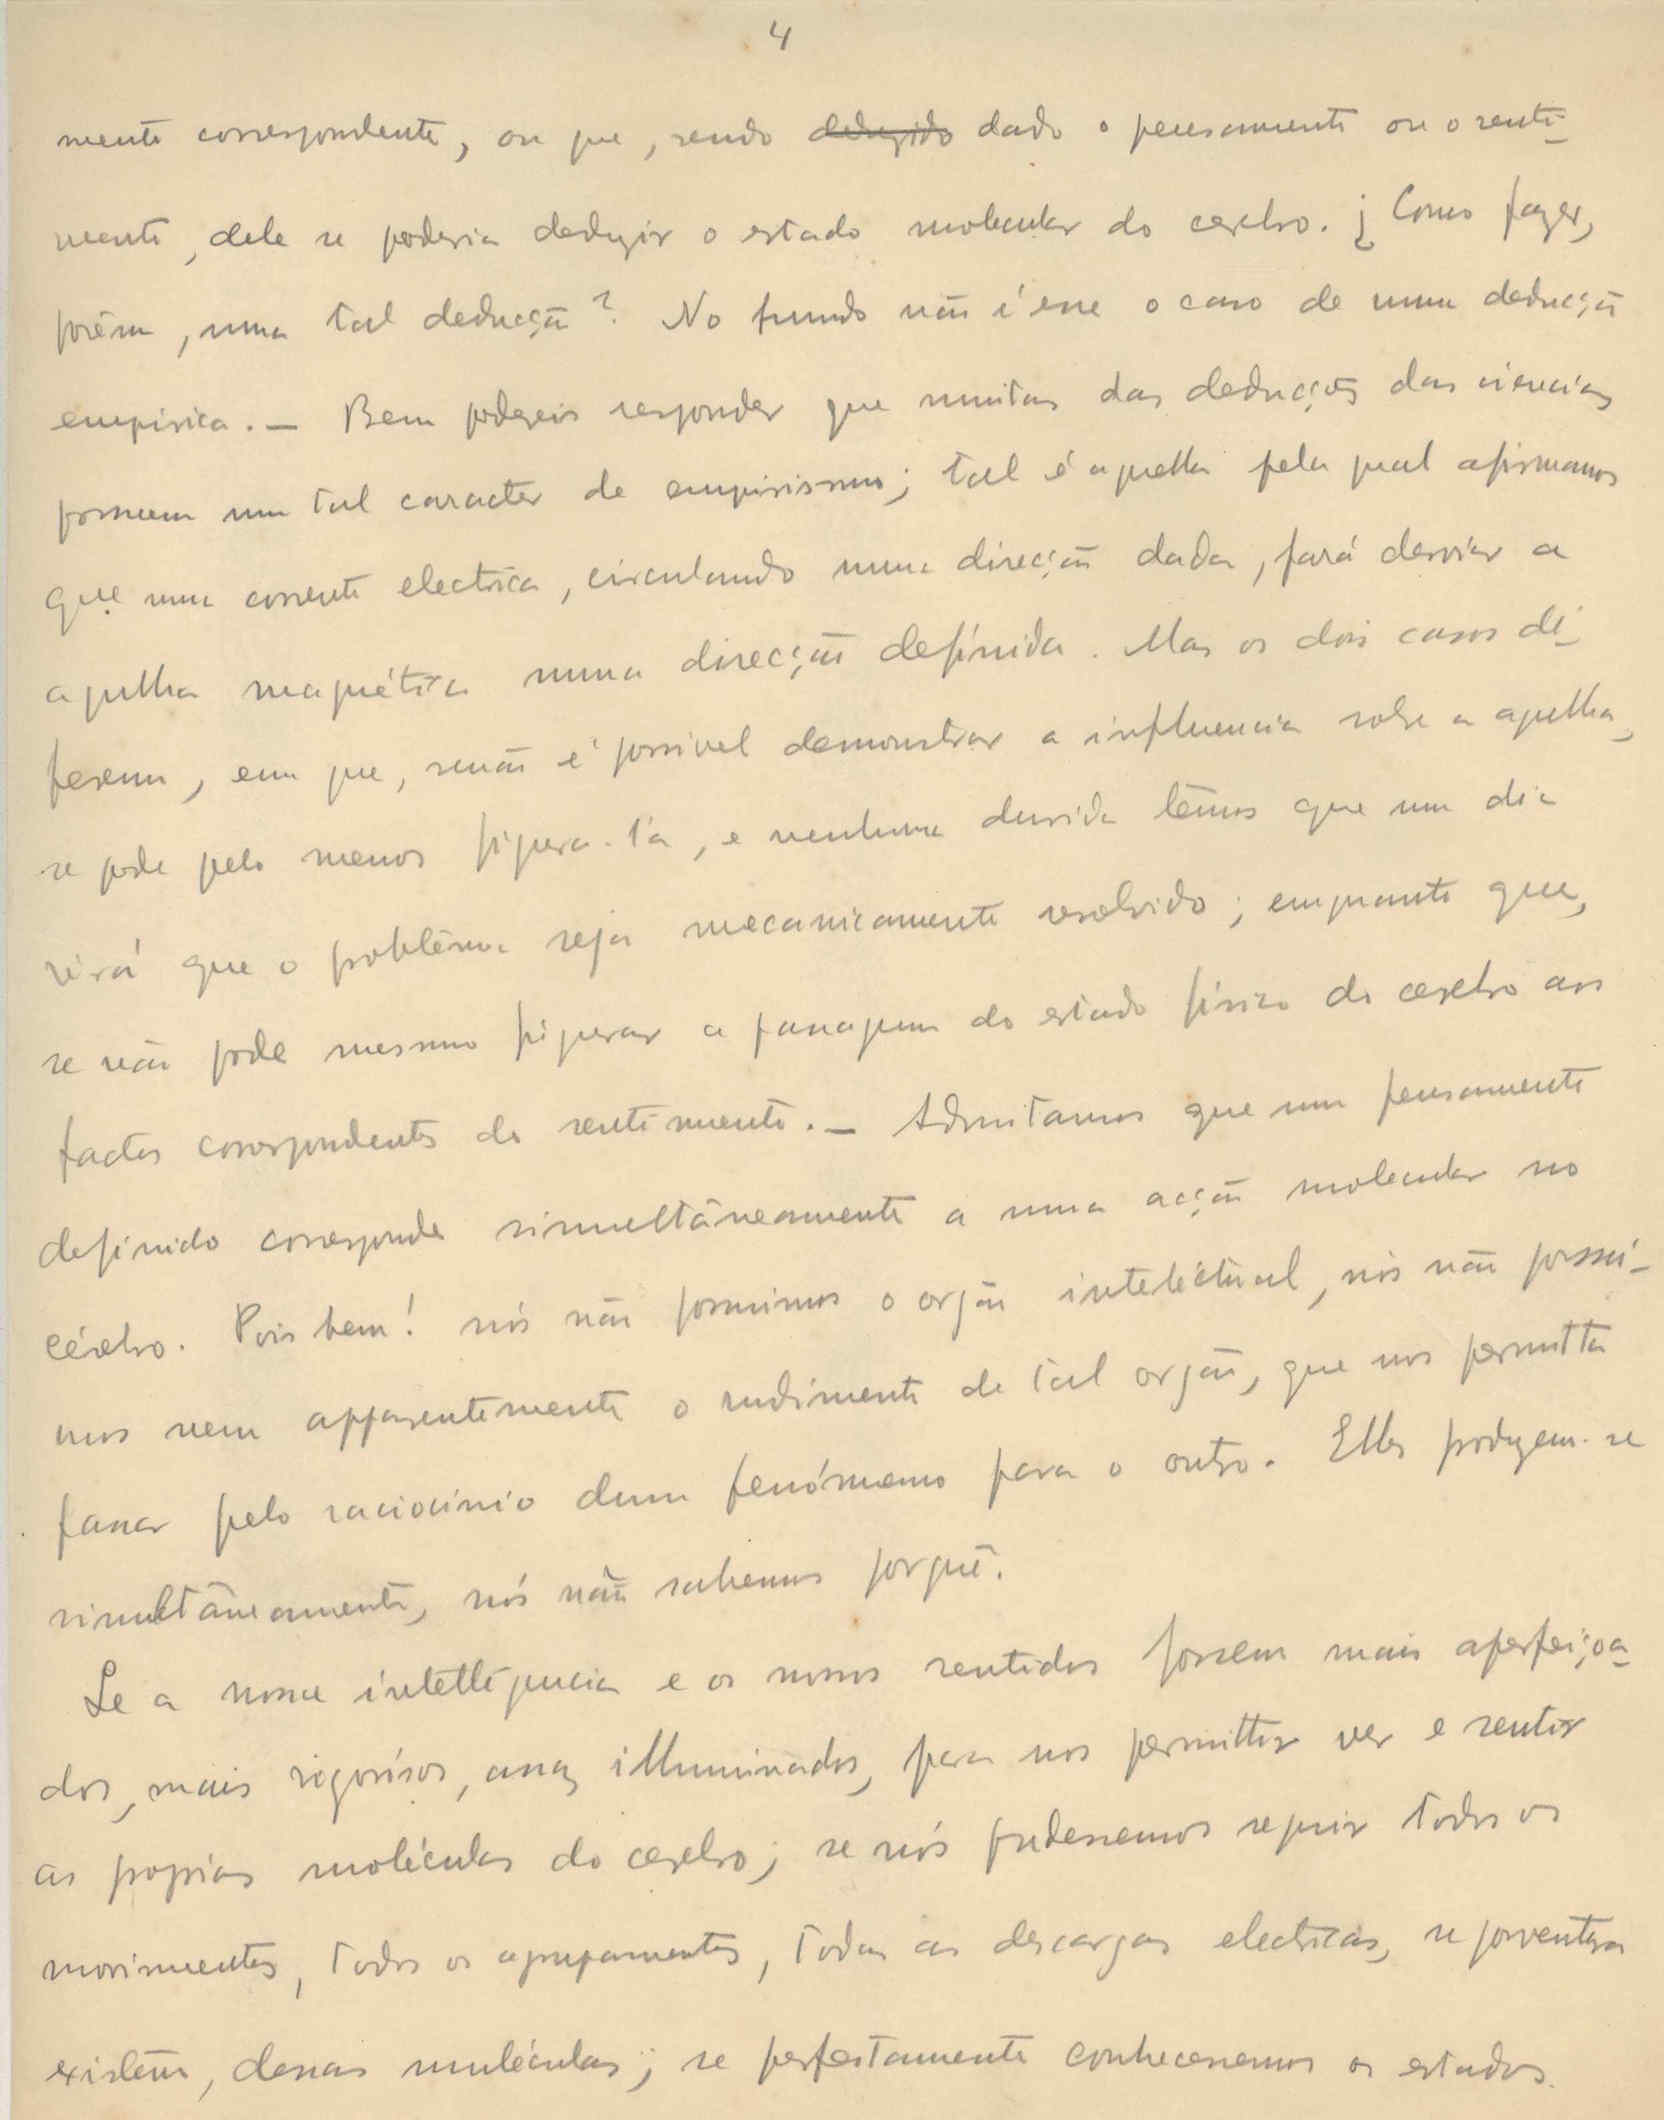 4
mento correspondente, ou que, sendo deduzido dado o pensamento ou o senti-
mento, dele se poderia deduzir o estado molecular do cerebro. ¿ Como fazer,
porêm, uma tal deducção? No fundo não é esse o caso de uma deducção
empirica. — Bem podereis responder que muitas das deducções das ciencias
possuem um tal caracter de empirismo; tal é aquella pela qual afirmamos
que uma corrente electrica, circulando numa direcção dada, fará desviar a
agulha magnética numa direcção definida. Mas os dois casos di-
ferem, em que, senão é possivel demonstrar a influencia sobre a agulha,
se pode pelo menos figura-la, e nenhuma duvida têmos que um dia
virá que o problêma seja mecanicamente resolvido; emquanto que,
se não pode mesmo figurar a passagem do estado fisico do cerebro aos
factos correspondentes do sentimento. — Admitamos que um pensamento
definido corresponde simultâneamente a uma acção molecular no
cérebro. Pois bem! nós não possuimos o orgão inteléctual, nós não possui-
mos nem apparentemente o rudimento de tal orgão, que nos permitta
passar pelo raciocinio dum fenómemo para o outro. Elles produzem-se
simultâneamente, nós não sabemos porquê.
Se a nossa intelligencia e os nossos sentidos fossem mais aperfeiçoa-
dos, mais rigorósos, assaz illuminados, para nos permittir ver e sentir
as proprias moléculas do cerebro; se nós pudessemos seguir todos os
movimentos, todos os agrupamentos, todas as descargas electricas, se porventura
existem, dessas muléculas; se perfeitamente conhecessemos os estados